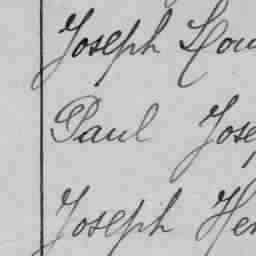 Joseph Lou
Paul Jose
Joseph Hen